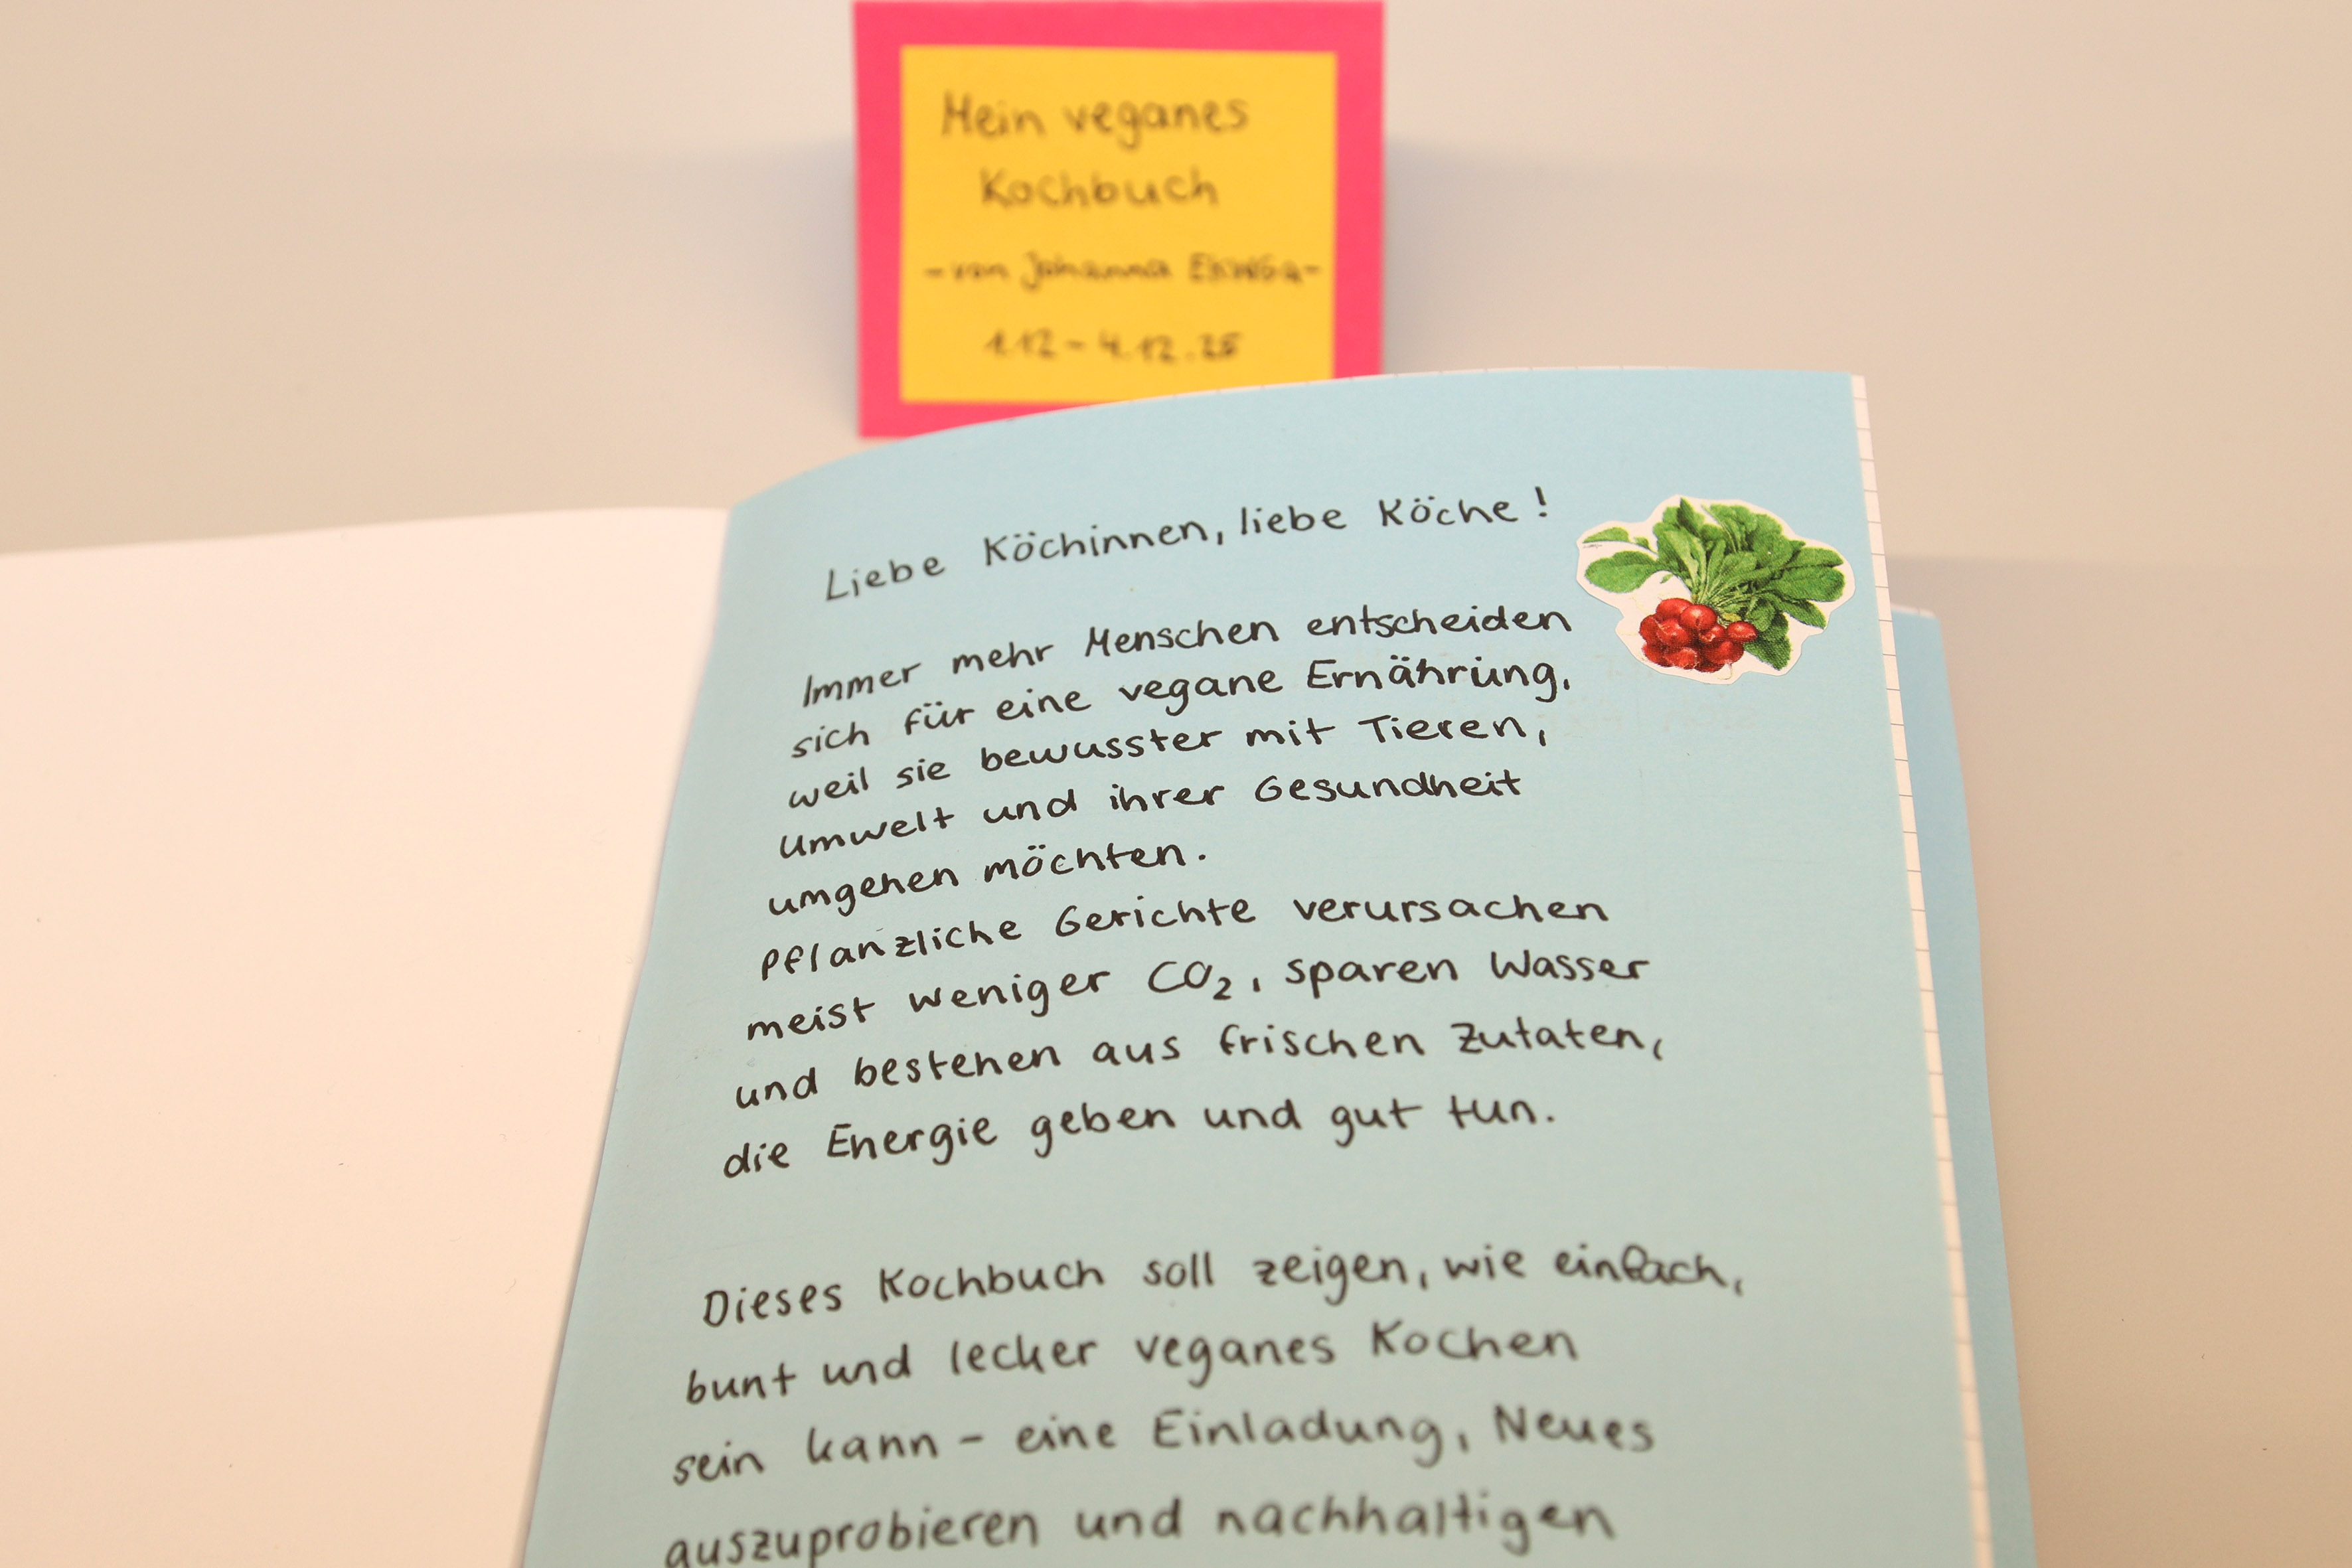 Mein veganes
Kochbuch
- von Johanna
1.12 - 4.12.25
Liebe Köchinnen, liebe Köche!
Immer mehr Menschen entscheiden
sich für eine vegane Ernährung,
weil sie bewusster mit Tieren,
Umwelt und ihrer Gesundheit
umgehen möchten.
Pflanzliche Gerichte verursachen
meist weniger CO₂, sparen Wasser
und bestehen aus frischen Zutaten,
die Energie geben und gut tun.
Dieses Kochbuch soll zeigen, wie einfach,
bunt und lecker veganes Kochen
sein kann - eine Einladung, Neues
auszuprobieren und nachhaltigen